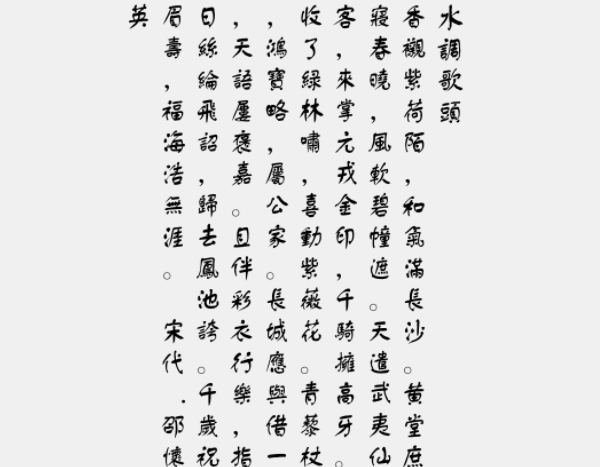 水調歌頭
香襯紫荷陌，和氣滿長沙。黃堂庶
寢春曉，風軟碧幢遮。天遣武夷仙
客，來掌元戎金印，千騎擁高牙。
收了綠林嘯，喜動紫薇花。青藜杖
，鴻寶略，屬公家。長城應與借一
，天語屢褒嘉。且伴彩衣行樂，指
日絲綸飛詔，歸去鳳池誇。千歲祝
眉壽，福海浩無涯。 宋代.邵懷
英